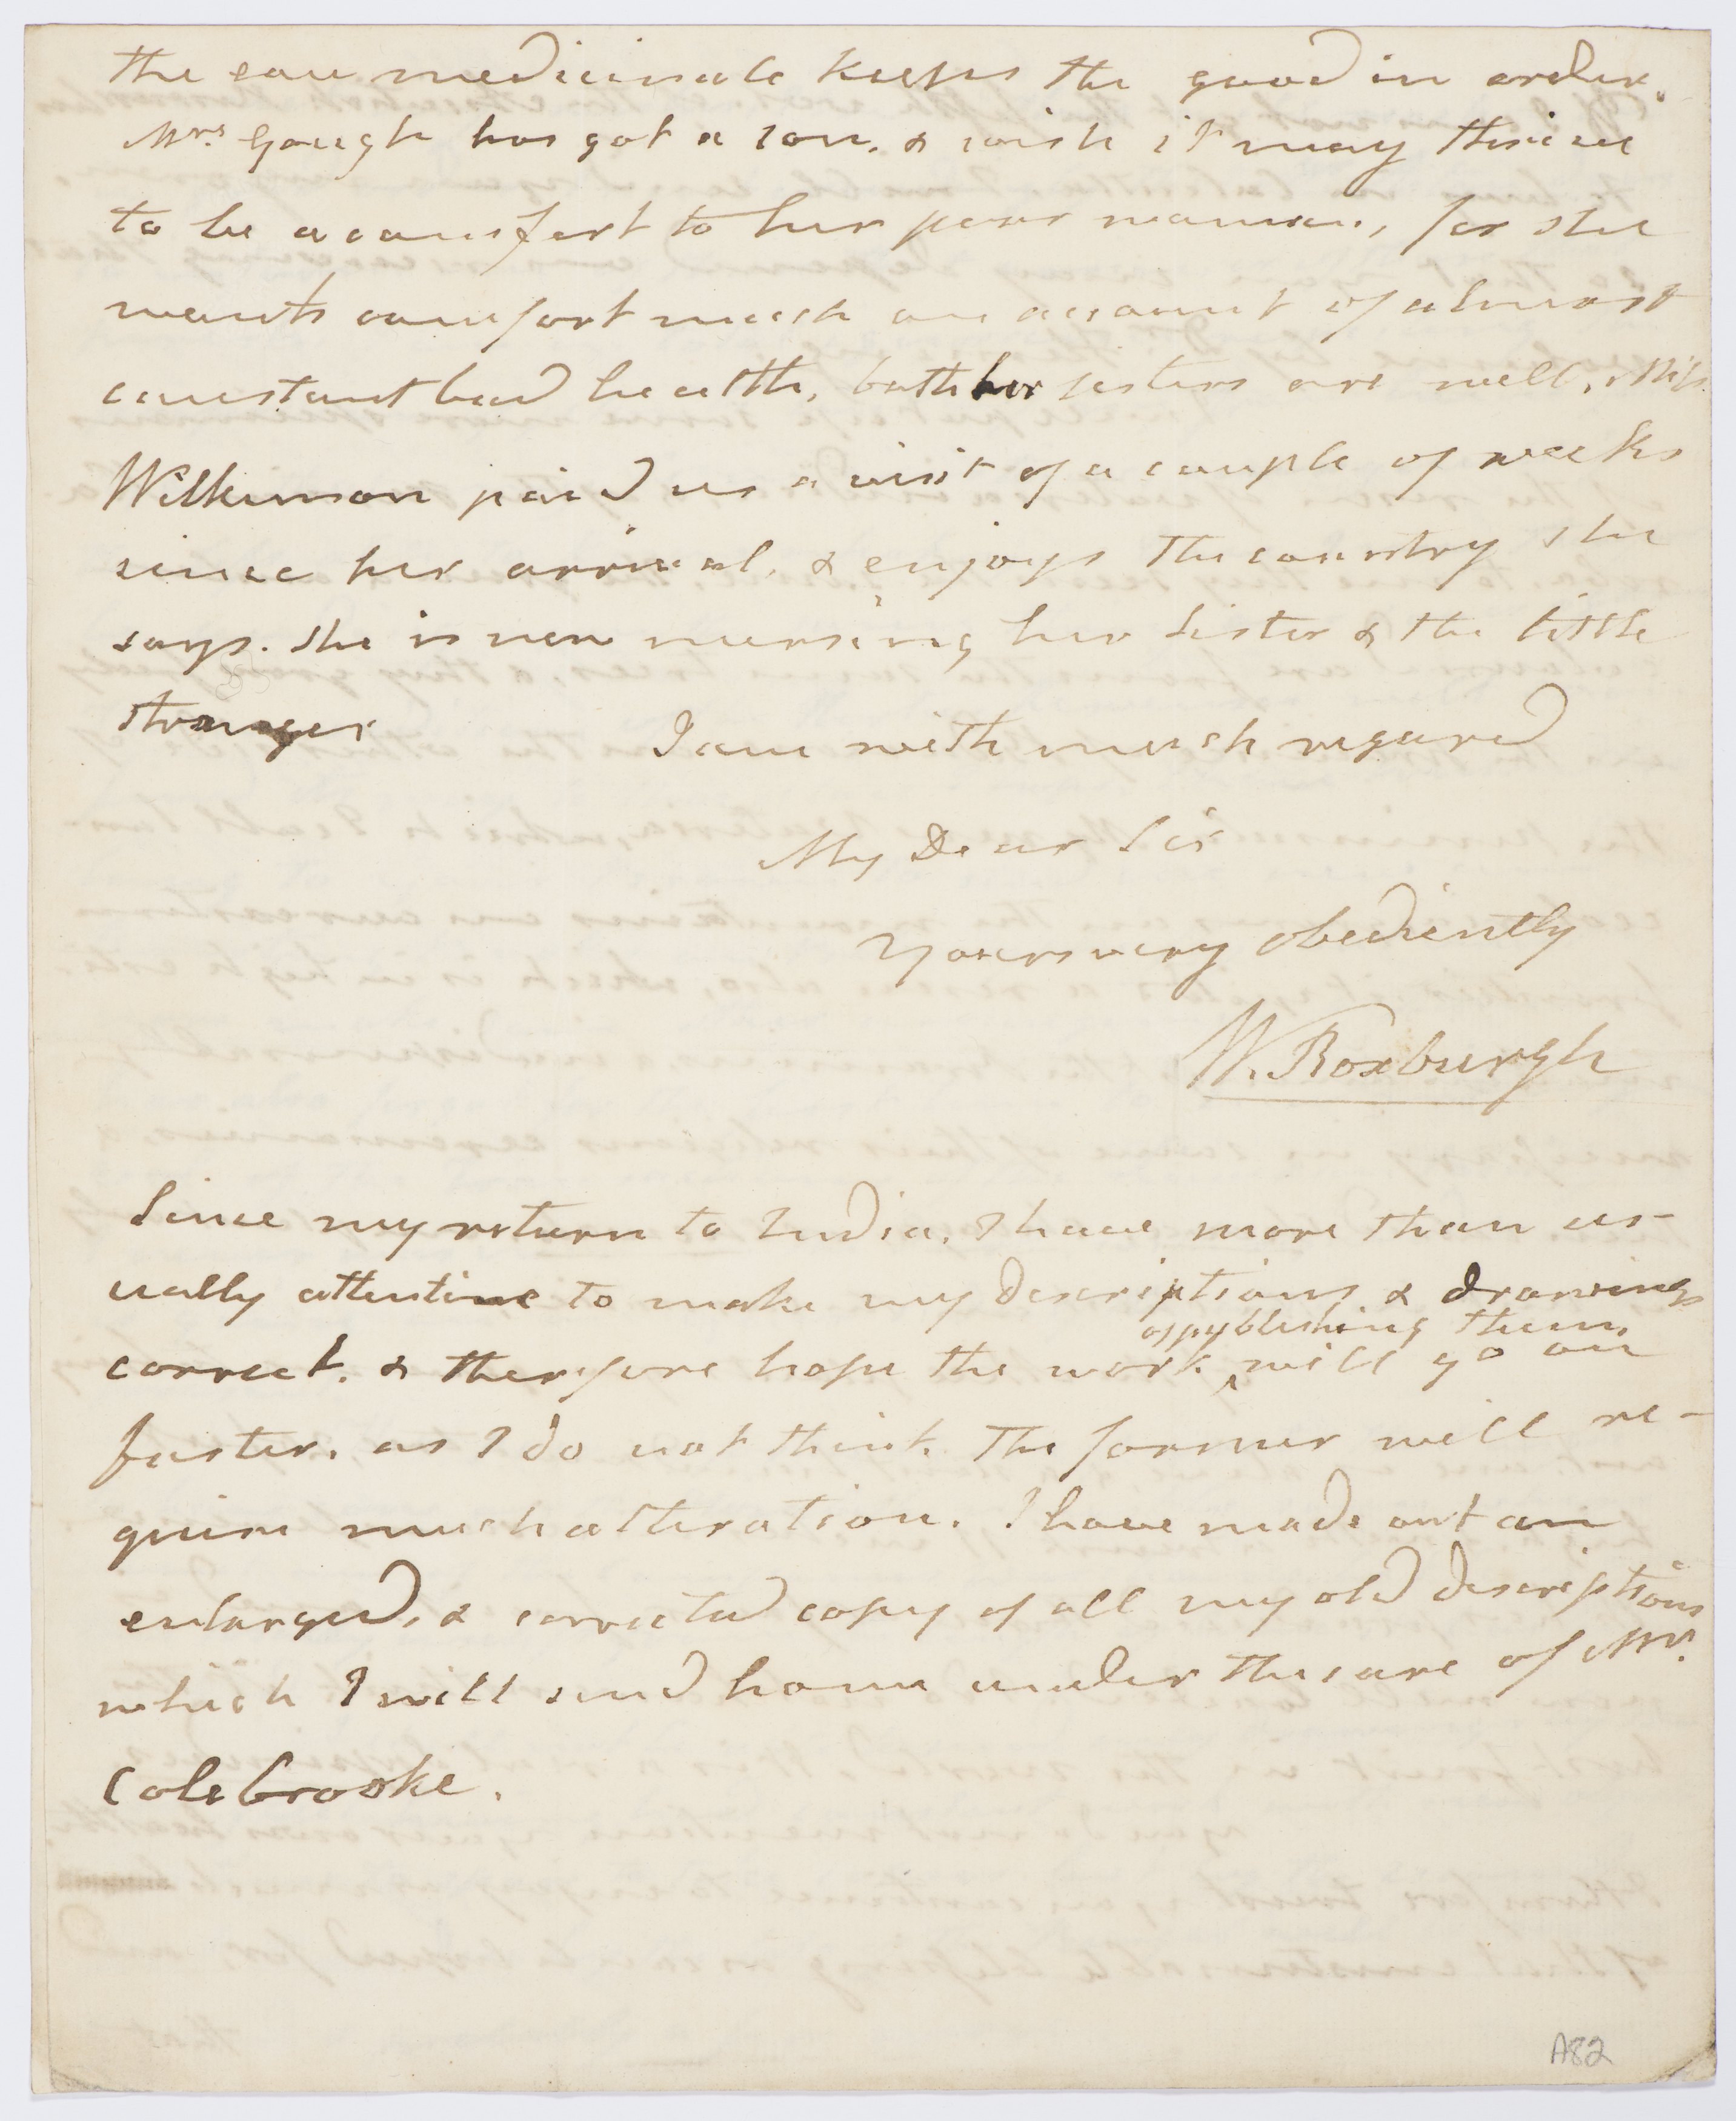 the eau medicinale keeps the goud in order.
Mrs. Gough has got a son. & wish it may thrive
to be a comfort to her poor woman, for she
wants comfort much on account of almost
constant bad health, both her sisters are well, Miss
Wilkinson paid us a visit of a couple of weeks
since her arrival, & enjoys the country she
says. She is now nursing her Sister & the little
stranger
I am with much regard
My Dear Sir
Yours very obediently
W. Roxburgh
Since my return to India, I have more than us-
ually attentive to make my descriptions & drawings
of publishing them
correct. & therefore hope the work ‸ will go on
faster, as I do not think the former will re-
quire much alteration. I have made out an
enlarged, & corrected copy of all my old descriptions
which I will send home under the care of Mr.
Colebrooke.
A82